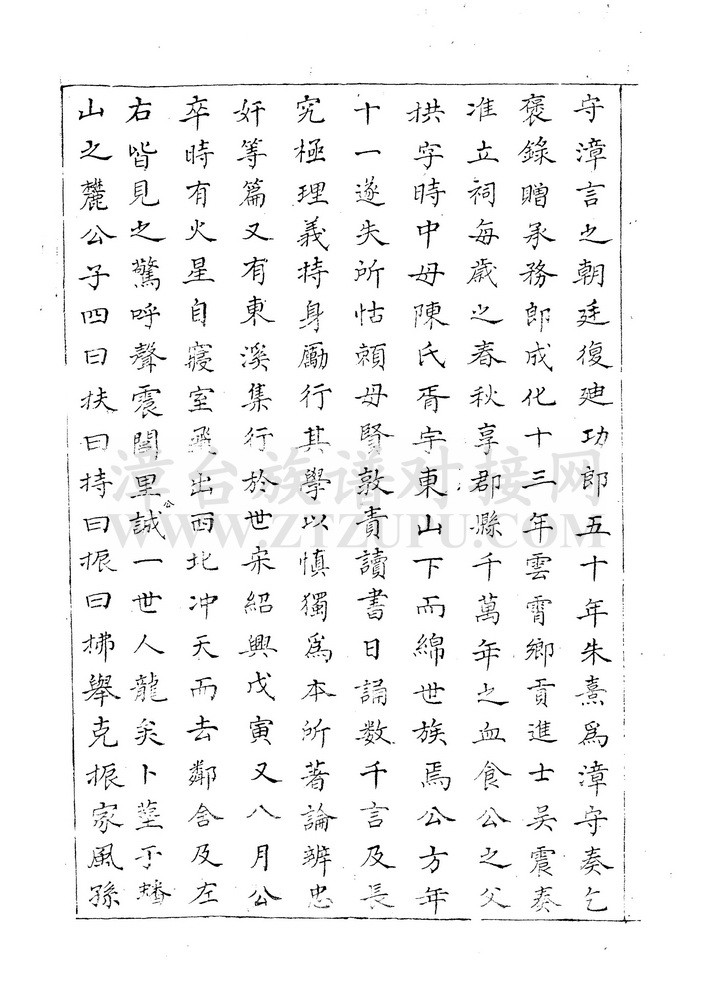 守漳言之朝廷復廸功郎五十年朱熹為漳守奏乞
褒錄贈承務郎成化十三年雲霄鄉貢進士吴震奏
准立祠每歲之春秋享郡縣千萬年之血食公之父
拱字時中母陳氏胥宇東山下而綿世族焉公方年
十一遂失所怙賴母賢敦責讀書日誦数千言及長
究極理義持身勵行其學以慎獨為本所著論辨忠
奸等篇又有東溪集行於世宋紹興戊寅又八月公
卒時有火星自寢室飛出西北冲天而去鄰舍及左
右皆見之驚呼聲震閭里誠一世人龍矣卜塟于
山之麓公子四曰扶曰持曰振曰拂舉克振家風孫
漳台族谱对接网
WWW.ZTZUPU.COM